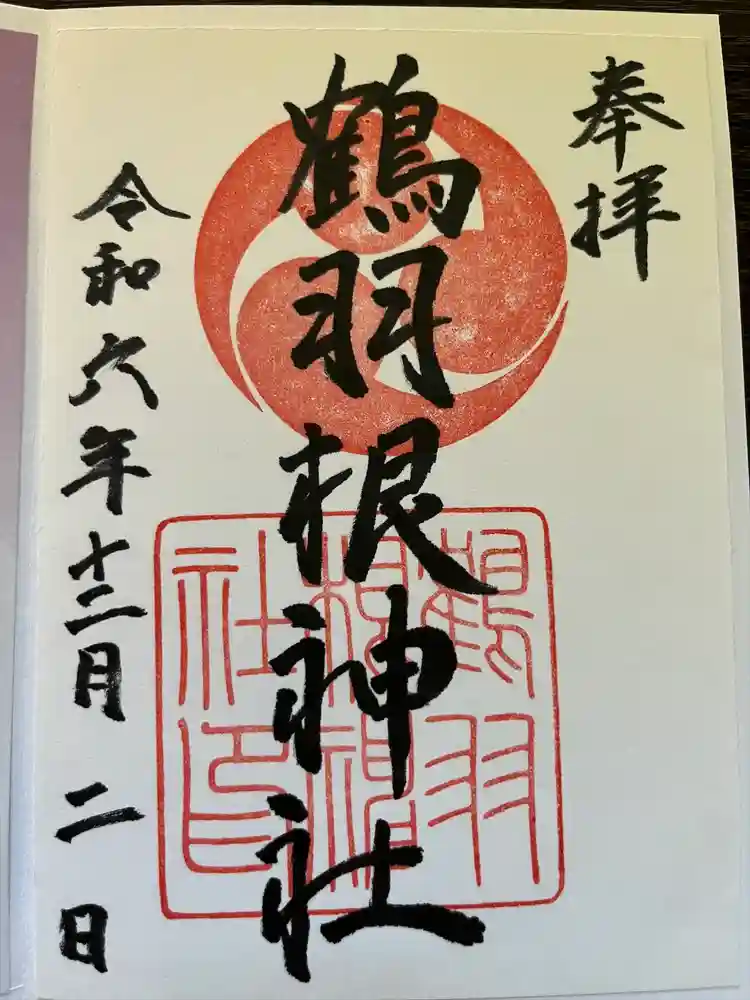 奉拝
鶴羽根神社
鶴羽根神社印
令和六年十二月二日